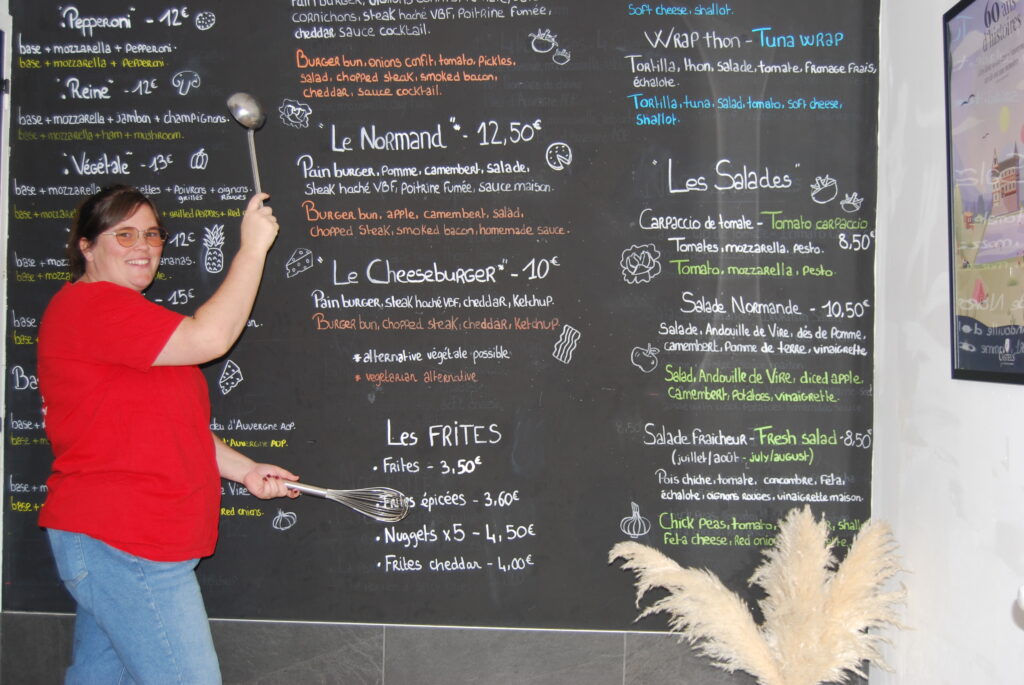 "Pepperoni" - 12€
base + mozzarella + Pepperoni.
base + mozzarella + Pepperoni
"Reine" - 12€
base + mozzarella + Jambon + champignons.
base + mozzarella + ham + mushroom.
"Végétale" - 13€
base + mozzarella + Poivrons + oignons.
grillés Rouges
base + mozza + grilled peppers + Red
12€
base + ananas.
base +
15€
base
base
Ba
base + d'Auvergne AOP.
base + d'Auvergne AOP.
base + m de Vire
base + Red onions.
cornichons, steak haché VBF, Poitrine Fumée,
cheddar sauce cocktail.
Burger bun, onions confit, tomato, Pickles,
salad, chopped steak, smoked bacon,
cheddar, sauce cocktail.
"Le Normand"* - 12,50€
Pain burger, Pomme, camembert, salade,
steak haché VBF, Poitrine Fumée, sauce maison.
Burger bun, apple, camembert, salad,
chopped steak, smoked bacon, homemade sauce.
"Le Cheeseburger"* - 10€
Pain burger, steak haché VBF, cheddar, Ketchup.
Burger bun, chopped steak, cheddar, Ketchup.
* alternative végétale possible
* vegetarian alternative
Les FRITES
• Frites - 3,50€
Frites épicées - 3,60€
• Nuggets x5 - 4,50€
• Frites cheddar - 4,00€
soft cheese, shallot.
Wrap thon - Tuna wrap
Tortilla, thon, salade, tomate, fromage frais,
échalote.
Tortilla, tuna, salad, tomato, soft cheese,
shallot.
"Les Salades"
Carpaccio de tomate - Tomato carpaccio
8,50€
Tomates, mozzarella, pesto.
Tomato, mozzarella, pesto.
Salade Normande - 10,50€
Salade, Andouille de Vire, dés de Pomme,
camembert, Pomme de terre, vinaigrette
Salad, Andouille de Vire, diced apple,
Camembert, Potatoes, vinaigrette.
Salade fraicheur - Fresh salad - 8,50€
(juillet/août - july/august)
Pois chiche, tomate, concombre, Feta,
échalote, oignons rouges, vinaigrette maison.
Chick peas, tomato, shallot
Feta cheese, Red onion
60 ans
d'histoires